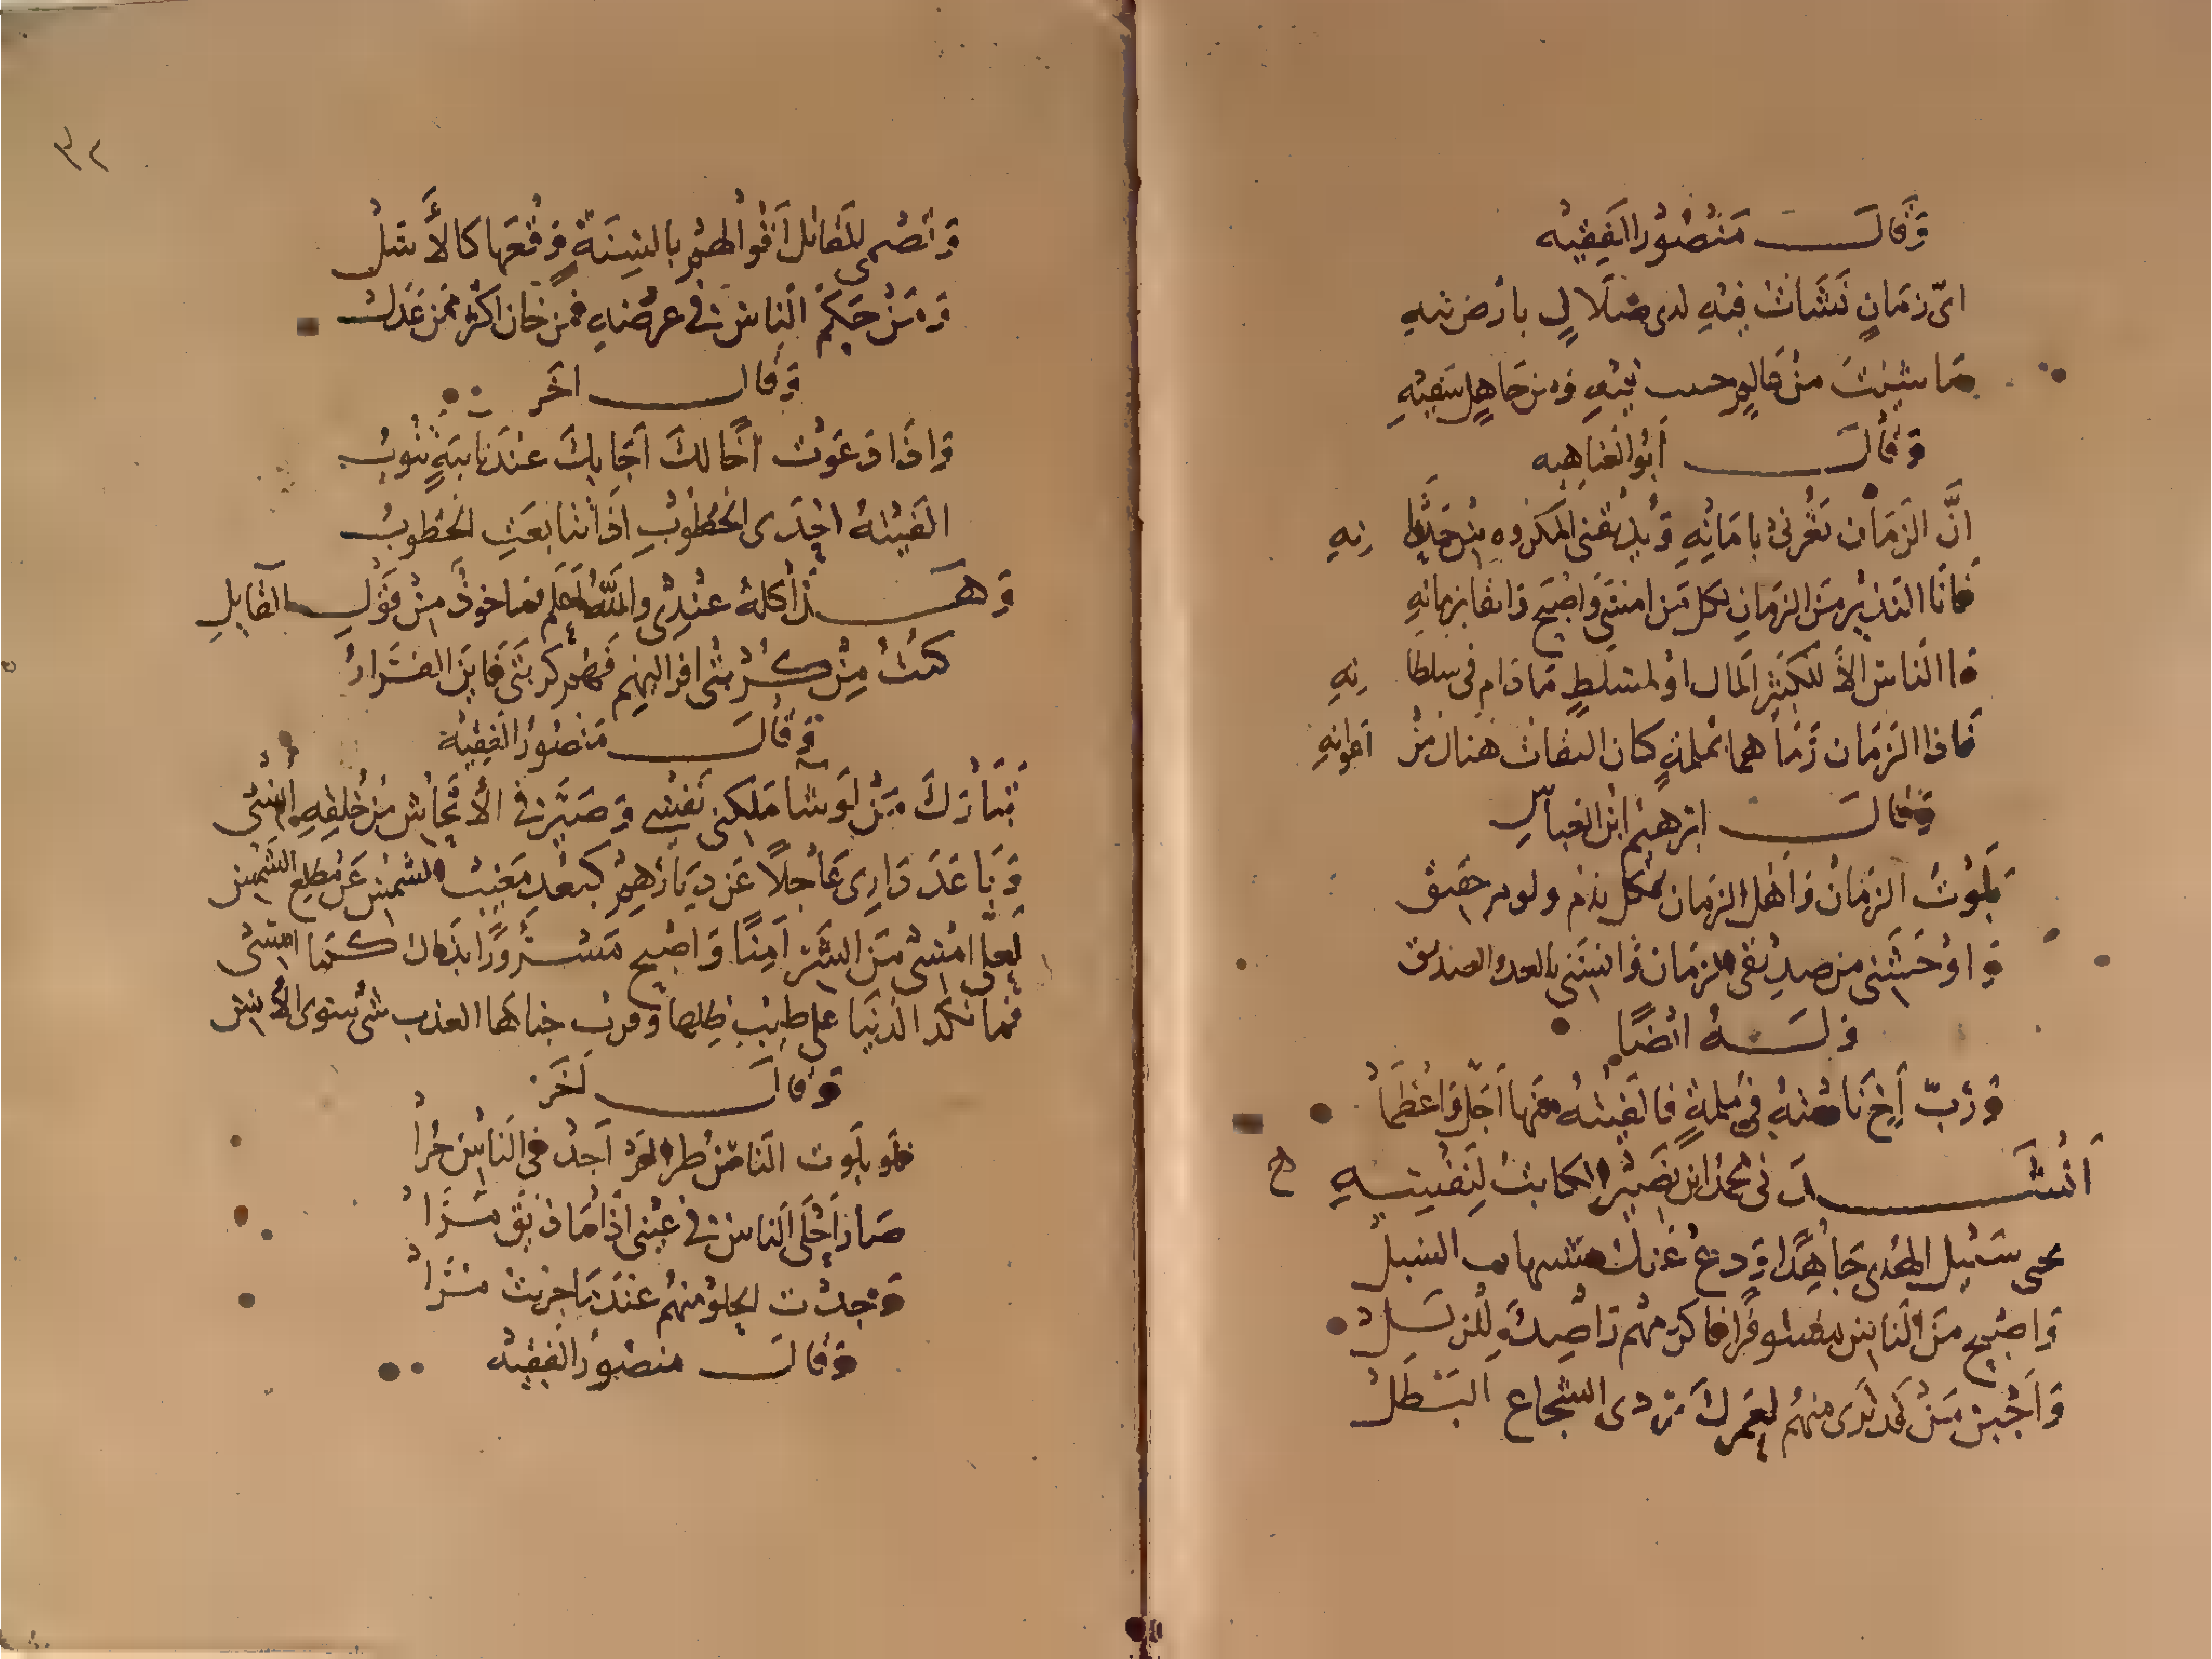 وَقَالَ مَنْصُورُ الفَقِيْه
اىّ زمَانٍ نَشَاتُ فِيْهِ لدى ضلَالٍ بارض تيهِ
مَا شِيْتَ مِنْ عَالِمٍ فيْهِ ومن جَاهِل سَفِيْهِ
وَقَالَ أَبُو العَتَاهِيه
انَّ الزَمَان يَغُرني بامَانِهِ وَيُذيقني المكروه مِنْ حَدثَانِهِ
فانَا النَذيْر مِنَ الزمَانِ لكل مَن امسَى وَاصْبَح وَاثقا بزمانِهِ
ما الناس الاَّ للكَثِير المَال اوْ لمسَلطٍ مَا دَام في سلطانِهِ
فَاذا الزَمَان رَمَاهما بملمةٍ كان الثقَات هنَاكَ مِنْ اعوانِهِ
وَقَالَ ابرهيْم ابْن العباسِ
بَلَوْتُ الزمَانَ وَاهْل الزمان بكل بذم ولوم حقيق
وَاوْحَشَنى من صديْقى الزمَان وَانسَنى بالعدو الصديق
وَلَهُ ايْضًا
وَرُبّ اَخٍ نَاديْتهُ في مُلمةٍ فالفيْتهُ منها اَجَلّ وَاعْظَمَا
اَنْشَدَنى محمد ابن نصَيْر الكاتبُ لِنَفْسِهِ
سَبيْل الهُدى جَاهِدًا وَدعْ عَنْكَ السبلْ
وَاصْبح مِنَ النَاس فاكرمهُم وَاصِلَةٍ للزلَلْ
وَاَجْبن مَنْ قَد تَرَى منهُم لَعَمركَ مردى الشجاع البَطَلْ
٣٢
وَتصْمى المَقاتل اقْوالهُم بالسِنَةٍ وَقْعَهَا كالأَسَلْ
وَمَنْ حَكّمَ النَاس في عرضِهِ فَمن خان اكثر ممن عَدَلْ
وَقَالَ اخَر
وَاذَا دَعَوْت اخًا لكَ اَجَابكَ عنْدَ نَايبَةٍ تنُوبُ
الفَيْتهُ احْدَى الخُطُوبِ اذَا تتَابعَتِ الخُطوبُ
وَهَذَا كلهُ عنْدِىْ وَاللَّهُ اَعْلم مَاخوذٌ مِنْ قَوْلِ القَايلِ
كنتُ مِنْ كُرْبَتى افر اليْهِم فَهُم كربَتى فَايْنَ الفِرَارُ
وَقَالَ مَنْصُورُ الفَقِيْهُ
تَبَارَكَ مَنْ لَوْ شَآ مَلكنى نَفْسِى وَصَيَّرنى الاَّ تجَانُس مِنْ خَلقِهِ اُنْسِى
وَبَاعَدَ دَارِى عَاجلًا عَن دِيَارهِم كَبُعْد مَغيْب الشمْس عَن مَطلع الشَمْس
لَعلى امْسى مِنَ الشَر اَمِنًا وَاصْبح مَسْرُورًا بذَاكَ كمَا امْسِى
فَمَا نَكد الدُنيَا على طِيْبِ ظِلهَا وَقربْ جنَاهَا العذب شئ سوى الاُنْسِ
وَقَالَ اَخَر
فلو بلَوت النَاسْ طرا لمْ اَجدْ في النَاسِ حُراْ
صَار اَحْلَى النَاس في عَيْنى اذَا مَا ذِيْقَ مُرَّاْ
وَجدْت الحلوَ منهُم عنْدَ مَا جرَبْتُ مُرَّاْ
وَقَالَ منصُورُ الفَقِيْهْ